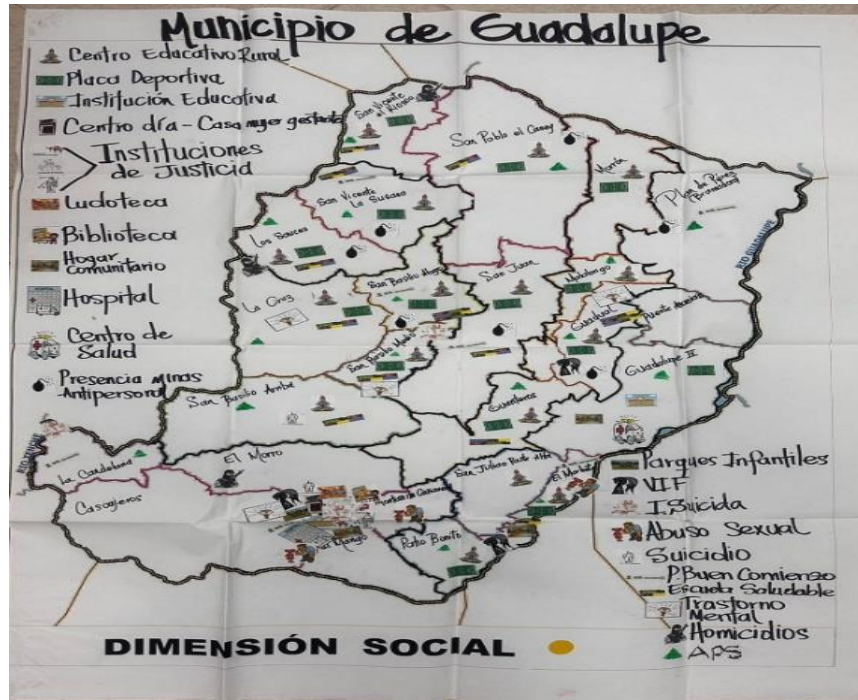 Municipio de Guadalupe
Centro Educativo Rural
Placa Deportiva
Institución Educativa
Centro día - Casa mujer gestante
Instituciones
de Justicia
Ludoteca
Biblioteca
Hogar
comunitario
Hospital
Centro de
Salud
Presencia Minas
Antipersonal
San Vicente
San Pablo el Caney
Morrón
Plan de Pérez
RIO GUADALUPE
San Vicente
La Susana
Los Sauces
La Cruz
San Basilio
San Juan
Malabrigo
Guadual
Guadalupe II
San Basilio Arriba
Guanteros
La Candelaria
El Morro
San Julián Parte Alta
El Machete
Casajeros
Patio Bonito
Parques Infantiles
VIF
I. Suicida
Abuso Sexual
Suicidio
P. Buen Comienzo
Escuela Saludable
Trastorno
Mental
Homicidios
APS
DIMENSIÓN SOCIAL